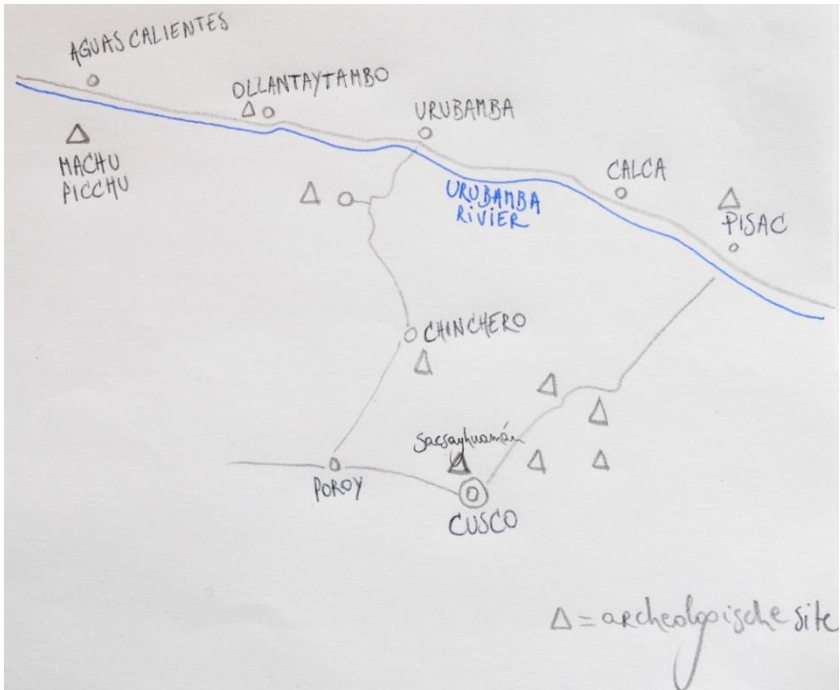 AGUAS CALIENTES
OLLANTAYTAMBO
URUBAMBA
MACHU
PICCHU
CALCA
URUBAMBA
RIVIER
PISAC
CHINCHERO
Sacsayhuamán
POROY
CUSCO
Δ = archeologoische site